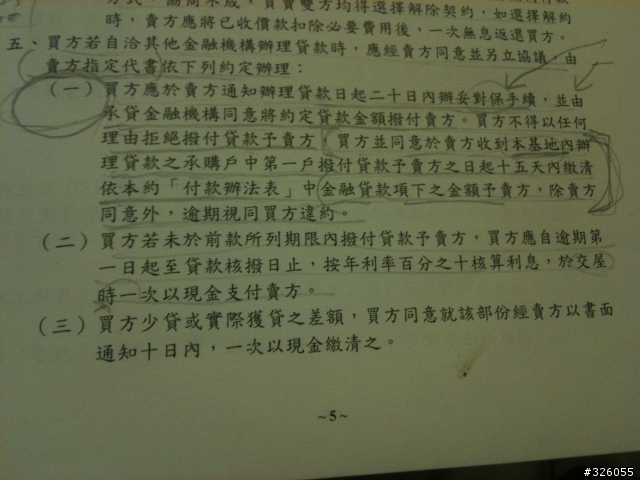 方式，協商不成，買賣雙方均得選擇解除契約，如選擇解約
時，賣方應將已收價款扣除必要費用後，一次無息返還買方。
五、買方若自洽其他金融機構辦理貸款時，應經賣方同意並另立協議，由
賣方指定代書依下列約定辦理：
（一）買方應於賣方通知辦理貸款日起二十日內辦妥對保手續，並由
承貸金融機構同意將約定貸款金額撥付賣方。買方不得以任何
理由拒絕撥付貸款予賣方，買方並同意於賣方收到本基地內辦
理貸款之承購戶中第一戶撥付貸款予賣方之日起十五天內繳清
依本約「付款辦法表」中金融貸款項下之金額予賣方，除賣方
同意外，逾期視同買方違約。
（二）買方若未於前款所列期限內撥付貸款予賣方，買方應自逾期第
一日起至貸款核撥日止，按年利率百分之十核算利息，於交屋
時一次以現金支付賣方。
（三）買方少貸或實際獲貸之差額，買方同意就該部份經賣方以書面
通知十日內，一次以現金繳清之。
~5~
#326055